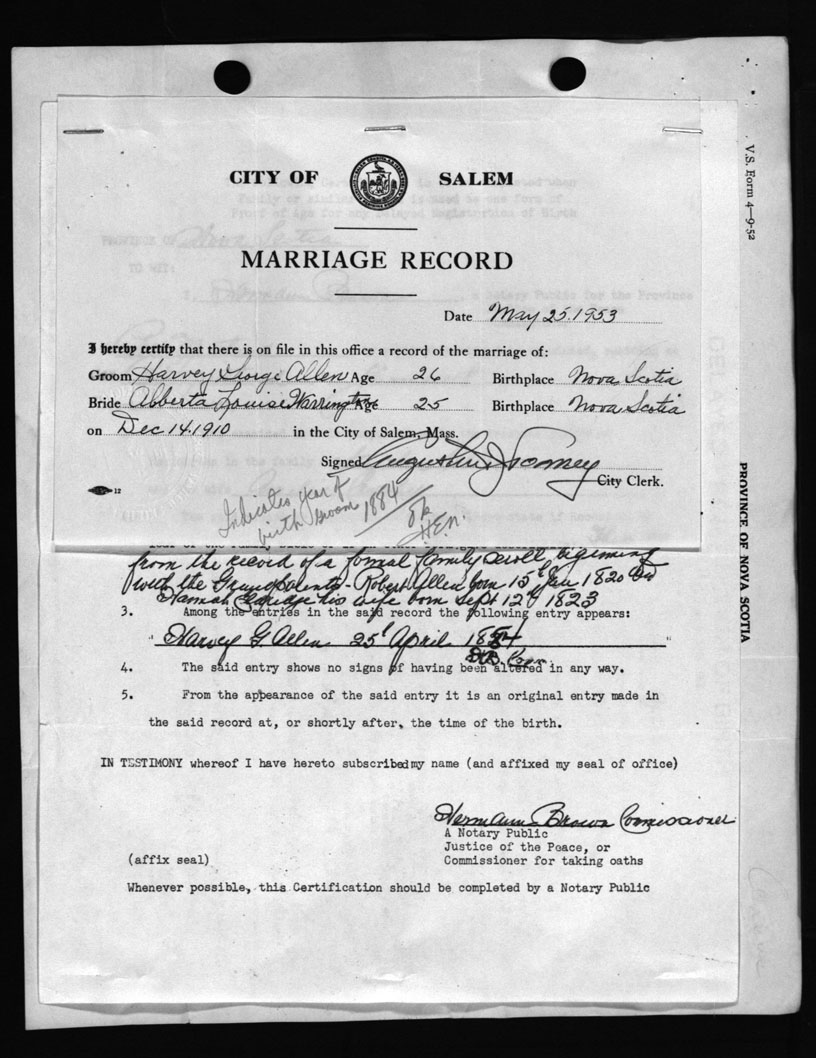 V.S. Form 4—9-52
CITY OF SALEM
MARRIAGE RECORD
Date May 25, 1953
I hereby certify that there is on file in this office a record of the marriage of:
Groom Harvey George Allen Age 26 Birthplace Nova Scotia
Bride Abberta Louise Warrington Age 25 Birthplace Nova Scotia
on Dec 14, 1910 in the City of Salem, Mass.
Signed Augustin J Toomey
City Clerk.
12
Indicates year of
birth Groom 1884
OK
H.E.N.
from the record of a formal family scroll beginning
with the Grandparents - Robert Allen born 15th Jan 1820 and
Hannah his wife born Sept 12th 1823
3. Among the entries in the said record the following entry appears:
" Harvey G. Allen 25th April 1884 "
4. The said entry shows no signs of having been altered in any way.
5. From the appearance of the said entry it is an original entry made in
the said record at, or shortly after, the time of the birth.
IN TESTIMONY whereof I have hereto subscribed my name (and affixed my seal of office)
Hermann Brown Commissioner
A Notary Public
Justice of the Peace, or
(affix seal) Commissioner for taking oaths
Whenever possible, this Certification should be completed by a Notary Public
PROVINCE OF NOVA SCOTIA